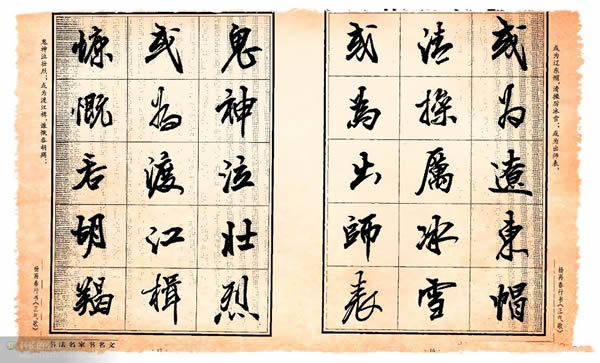 或为辽东帽，清操厉冰雪；或为出师表，
杨再春行书《正气歌》
或为遼東帽
清操厲冰雪
或為出師表
·16·
鬼神泣壮烈
或为渡江楫
慷慨吞胡羯
鬼神泣壮烈；或为渡江楫，慷慨吞胡羯；
杨再春行书《正气歌》
书法名家书名文
·17·